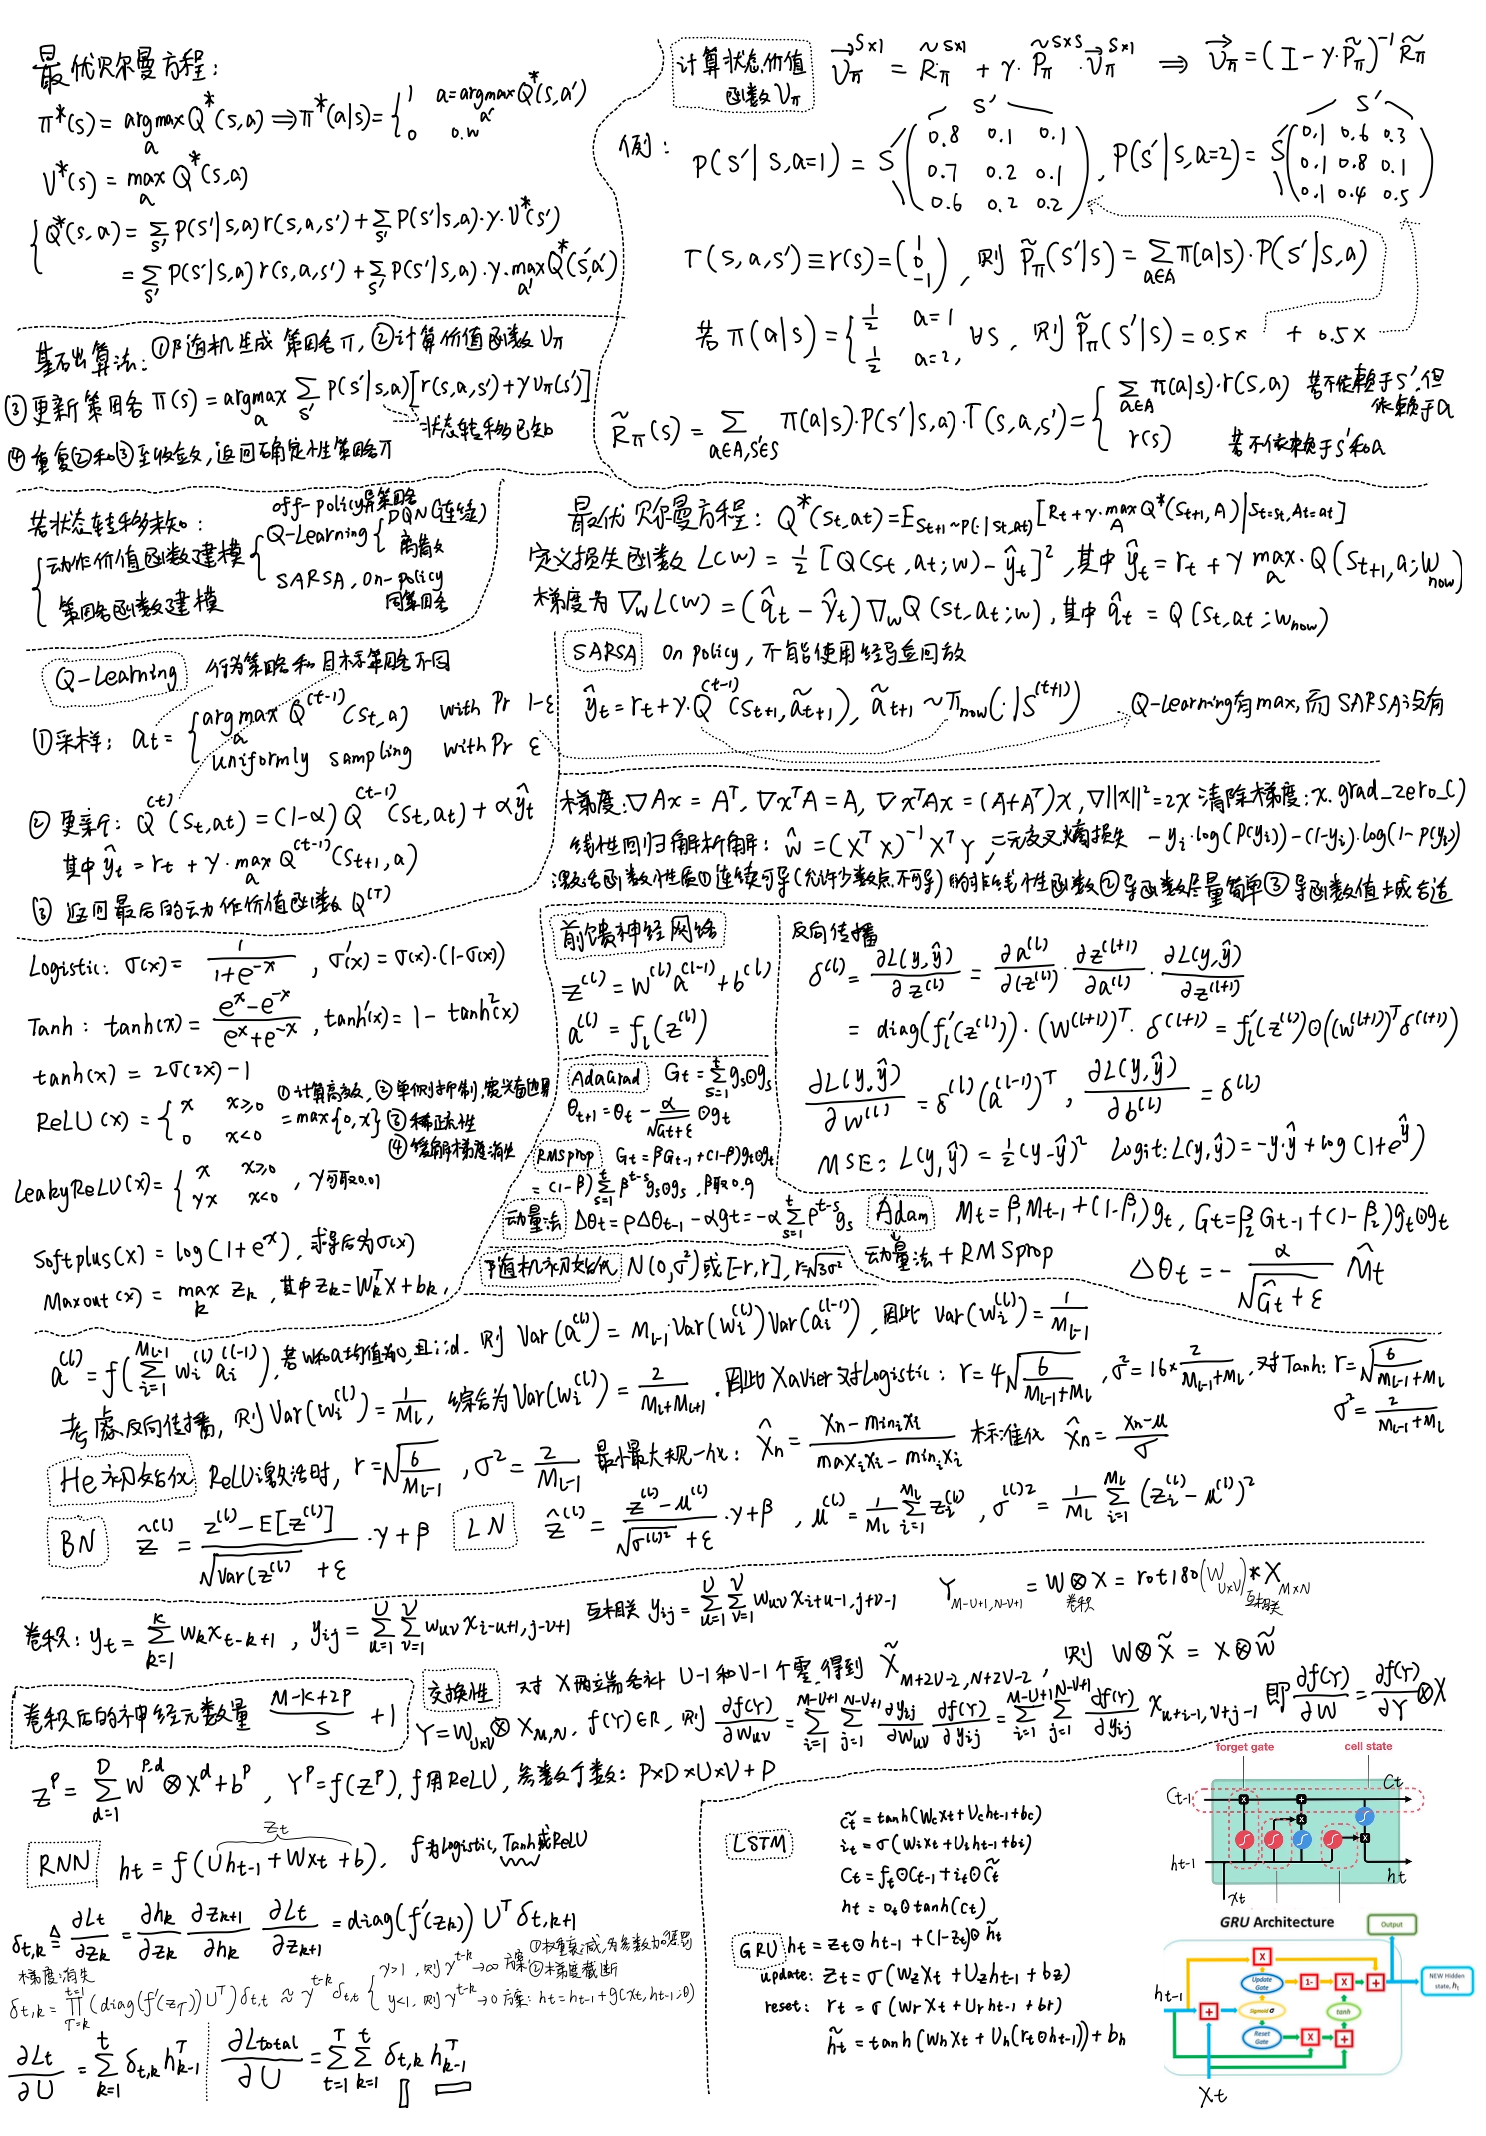 最优贝尔曼方程:
π*(s) = argmax_a Q*(s,a) ⇒ π*(a|s) = { 1 a=argmax_{a'} Q*(s,a') ; 0 o.w
V*(s) = max_a Q*(s,a)
{ Q*(s,a) = Σ_{s'} P(s'|s,a) r(s,a,s') + Σ_{s'} P(s'|s,a)·γ·V*(s')
= Σ_{s'} P(s'|s,a) r(s,a,s') + Σ_{s'} P(s'|s,a)·γ·max_{a'} Q*(s',a')
计算状态价值函数 V_π
V_π^{S×1} = R̃_π^{S×1} + γ·P̃_π^{S×S}·V_π^{S×1} ⇒ V_π = (I - γ·P̃_π)^{-1} R̃_π
例: P(s'|s,a=1) = S (0.8 0.1 0.1 ; 0.7 0.2 0.1 ; 0.6 0.2 0.2) S' , P(s'|s,a=2) = S (0.1 0.6 0.3 ; 0.1 0.8 0.1 ; 0.1 0.4 0.5) S'
r(s,a,s') ≡ r(s) = (1 ; 0 ; -1), 则 P̃_π(s'|s) = Σ_{a∈A} π(a|s)·P(s'|s,a)
若 π(a|s) = { 1/2 a=1 ; 1/2 a=2, ∀s, 则 P̃_π(s'|s) = 0.5× + 0.5×
R̃_π(s) = Σ_{a∈A,s'∈S} π(a|s)·P(s'|s,a)·r(s,a,s') = { Σ_{a∈A} π(a|s)·r(s,a) 若不依赖于s',但依赖于a ; r(s) 若不依赖于s'和a
基石出算法: ①随机生成策略π, ②计算价值函数V_π
③更新策略 π(s) = argmax_a Σ_{s'} P(s'|s,a)[r(s,a,s') + γV_π(s')]
状态转移已知
④重复②和③至收敛, 返回确定性策略π
若状态转移未知:
{ 动作价值函数建模 { Q-Learning off-policy异策略 { DQN(连续) ; 离散
SARSA, on-policy 同策略
策略函数建模
最优贝尔曼方程: Q*(s_t,a_t) = E_{S_{t+1}~P(·|s_t,a_t)}[R_t + γ·max_A Q*(S_{t+1},A) | S_t=s_t, A_t=a_t]
定义损失函数 L(w) = ½[Q(s_t,a_t;w) - ŷ_t]², 其中 ŷ_t = r_t + γ max_a·Q(s_{t+1},a;w_now)
梯度为 ∇_w L(w) = (q̂_t - ŷ_t)∇_w Q(s_t,a_t;w), 其中 q̂_t = Q(s_t,a_t;w_now)
Q-Learning 行为策略和目标策略不同
①采样: a_t = { argmax_a Q^{(t-1)}(s_t,a) with Pr 1-ε
uniformly sampling with Pr ε
②更新: Q^{(t)}(s_t,a_t) = (1-α)Q^{(t-1)}(s_t,a_t) + αŷ_t
其中 ŷ_t = r_t + γ·max_a Q^{(t-1)}(s_{t+1},a)
③返回最后的动作价值函数 Q^{(T)}
SARSA On policy, 不能使用经验回放
ŷ_t = r_t + γ·Q^{(t-1)}(s_{t+1},ã_{t+1}), ã_{t+1} ~ π_now(·|s^{(t+1)}) Q-Learning有max,而SARSA没有
梯度: ∇Ax = A^T, ∇x^T A = A, ∇x^T Ax = (A+A^T)x, ∇||x||² = 2x 清除梯度: x.grad_zero_()
线性回归解析解: ŵ = (X^T X)^{-1} X^T Y, 二元交叉熵损失 -y_i·log(p(y_i)) - (1-y_i)·log(1-p(y_i))
激活函数性质①连续可导(允许少数点不可导)的非线性函数②导函数尽量简单③导函数值域合适
Logistic: σ(x) = 1/(1+e^{-x}), σ'(x) = σ(x)·(1-σ(x))
Tanh: tanh(x) = (e^x-e^{-x})/(e^x+e^{-x}), tanh'(x) = 1 - tanh²(x)
tanh(x) = 2σ(2x) - 1
ReLU(x) = { x x≥0 ; 0 x<0 = max{0,x} ①计算高效, ②单侧抑制,宽兴奋边界 ③稀疏性 ④缓解梯度消失
LeakyReLU(x) = { x x≥0 ; γx x<0 , γ可取0.01
Softplus(x) = log(1+e^x), 求导后为σ(x)
Maxout(x) = max_k z_k, 其中z_k = W_k^T X + b_k,
前馈神经网络
z^{(l)} = W^{(l)} a^{(l-1)} + b^{(l)}
a^{(l)} = f_l(z^{(l)})
反向传播
δ^{(l)} = ∂L(y,ŷ)/∂z^{(l)} = ∂a^{(l)}/∂(z^{(l)}) · ∂z^{(l+1)}/∂a^{(l)} · ∂L(y,ŷ)/∂z^{(l+1)}
= diag(f_l'(z^{(l)}))·(W^{(l+1)})^T·δ^{(l+1)} = f_l'(z^{(l)})⊙((W^{(l+1)})^T δ^{(l+1)})
∂L(y,ŷ)/∂W^{(l)} = δ^{(l)}(a^{(l-1)})^T, ∂L(y,ŷ)/∂b^{(l)} = δ^{(l)}
MSE: L(y,ŷ) = ½(y-ŷ)² Logit: L(y,ŷ) = -y·ŷ + log(1+e^ŷ)
AdaGrad G_t = Σ_{s=1}^t g_s⊙g_s
θ_{t+1} = θ_t - α/√(G_t+ε) ⊙g_t
RMSprop G_t = βG_{t-1} + (1-β)g_t⊙g_t
= (1-β)Σ_{s=1}^t β^{t-s} g_s⊙g_s, β取0.9
动量法 Δθ_t = ρΔθ_{t-1} - αg_t = -αΣ_{s=1}^t ρ^{t-s} g_s
Adam M_t = β_1 M_{t-1} + (1-β_1)g_t, G_t = β_2 G_{t-1} + (1-β_2)g_t⊙g_t
动量法+RMSprop Δθ_t = - α/(√Ĝ_t+ε) M̂_t
随机初始化 N(0,σ²)或[-r,r], r=√3σ²
a^{(l)} = f(Σ_{i=1}^{M_{l-1}} w_i^{(l)} a_i^{(l-1)}), 若w和a均值为0,且i.i.d. 则 Var(a^{(l)}) = M_{l-1}·Var(w_i^{(l)})Var(a_i^{(l-1)}), 因此 Var(w_i^{(l)}) = 1/M_{l-1}
考虑反向传播, 则Var(w_i^{(l)}) = 1/M_l, 综合为Var(w_i^{(l)}) = 2/(M_l+M_{l+1}). 因此Xavier对Logistic: r = 4√(6/(M_{l-1}+M_l)), σ² = 16×2/(M_{l-1}+M_l), 对Tanh: r = √(6/(M_{l-1}+M_l))
σ² = 2/(M_{l-1}+M_l)
He初始化 ReLU激活时, r = √(6/M_{l-1}), σ² = 2/M_{l-1} 最小最大规一化: x̂_n = (x_n - min_i x_i)/(max_i x_i - min_i x_i) 标准化 x̂_n = (x_n-μ)/σ
BN ẑ^{(l)} = (z^{(l)} - E[z^{(l)}])/(√Var(z^{(l)}) + ε)·γ + β LN ẑ^{(l)} = (z^{(l)} - μ^{(l)})/(√σ^{(l)2} + ε)·γ + β, μ^{(l)} = 1/M_l Σ_{i=1}^{M_l} z_i^{(l)}, σ^{(l)2} = 1/M_l Σ_{i=1}^{M_l}(z_i^{(l)} - μ^{(l)})²
卷积: y_t = Σ_{k=1}^K w_k x_{t-k+1}, y_ij = Σ_{u=1}^U Σ_{v=1}^V w_uv x_{i-u+1,j-v+1} 互相关 y_ij = Σ_{u=1}^U Σ_{v=1}^V w_uv x_{i+u-1,j+v-1} Y_{M-U+1,N-V+1} = W⊗X = rot180(W_{U×V})*X_{M×N}
卷积 互相关
卷积后的神经元数量 (M-K+2P)/S + 1
交换性 对X两端各补U-1和V-1个零,得到X̃_{M+2U-2,N+2V-2}, 则 W⊗X̃ = X⊗W̃
Y = W_{U×V}⊗X_{M,N}, f(Y)∈R, 则 ∂f(Y)/∂W_uv = Σ_{i=1}^{M-U+1} Σ_{j=1}^{N-V+1} ∂y_ij/∂W_uv ∂f(Y)/∂y_ij = Σ_{i=1}^{M-U+1} Σ_{j=1}^{N-V+1} ∂f(Y)/∂y_ij x_{u+i-1,v+j-1} 即 ∂f(Y)/∂W = ∂f(Y)/∂Y ⊗X
Z^P = Σ_{d=1}^D W^{P,d}⊗X^d + b^P, Y^P = f(Z^P), f用ReLU, 参数个数: P×D×U×V+P
RNN h_t = f(Uh_{t-1} + Wx_t + b), f为Logistic, Tanh或ReLU
z_t
δ_{t,k} ≜ ∂L_t/∂z_k = ∂h_k/∂z_k ∂z_{k+1}/∂h_k ∂L_t/∂z_{k+1} = diag(f'(z_k)) U^T δ_{t,k+1}
梯度消失
δ_{t,k} = Π_{τ=k}^{t-1}(diag(f'(z_τ))U^T)δ_{t,t} ≈ γ^{t-k} δ_{t,t} { γ>1, 则γ^{t-k}→∞ 方案: ①权重衰减,为参数加惩罚 ②梯度截断
γ<1, 则γ^{t-k}→0 方案: h_t = h_{t-1} + g(x_t,h_{t-1};θ)
∂L_t/∂U = Σ_{k=1}^t δ_{t,k} h_{k-1}^T ∂L_total/∂U = Σ_{t=1}^T Σ_{k=1}^t δ_{t,k} h_{k-1}^T
LSTM
c̃_t = tanh(W_c x_t + U_c h_{t-1} + b_c)
i_t = σ(W_i x_t + U_i h_{t-1} + b_i)
C_t = f_t⊙C_{t-1} + i_t⊙c̃_t
h_t = o_t⊙tanh(C_t)
GRU h_t = z_t⊙h_{t-1} + (1-z_t)⊙h̃_t
update: z_t = σ(W_z x_t + U_z h_{t-1} + b_z)
reset: r_t = σ(W_r x_t + U_r h_{t-1} + b_r)
h̃_t = tanh(W_h x_t + U_h(r_t⊙h_{t-1})) + b_h
forget gate
cell state
C_{t-1}
C_t
h_{t-1}
h_t
x_t
GRU Architecture
Output
Update Gate
Sigmoid σ
Reset Gate
tanh
NEW Hidden state, h_t
h_{t-1}
x_t